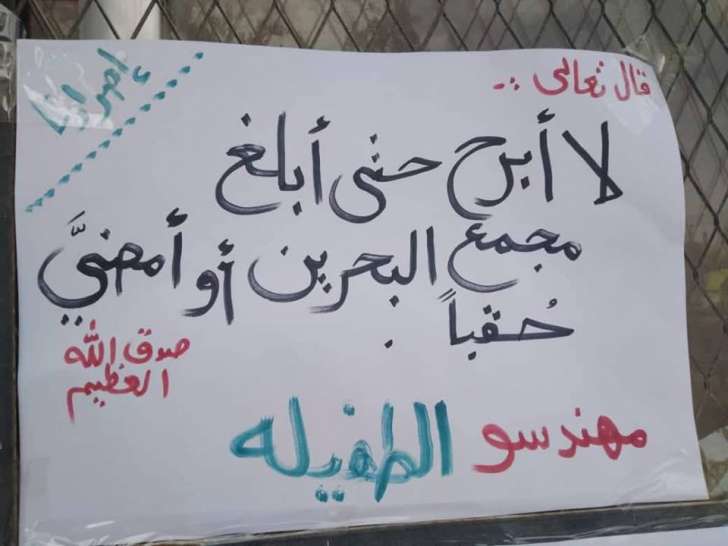 قال تعالى ..
إصرارنا
لا أبرح حتى أبلغ
مجمع البحرين أو أمضيَّ
حُقباً .
صدق الله
العظيم
مهندسو الطفيله